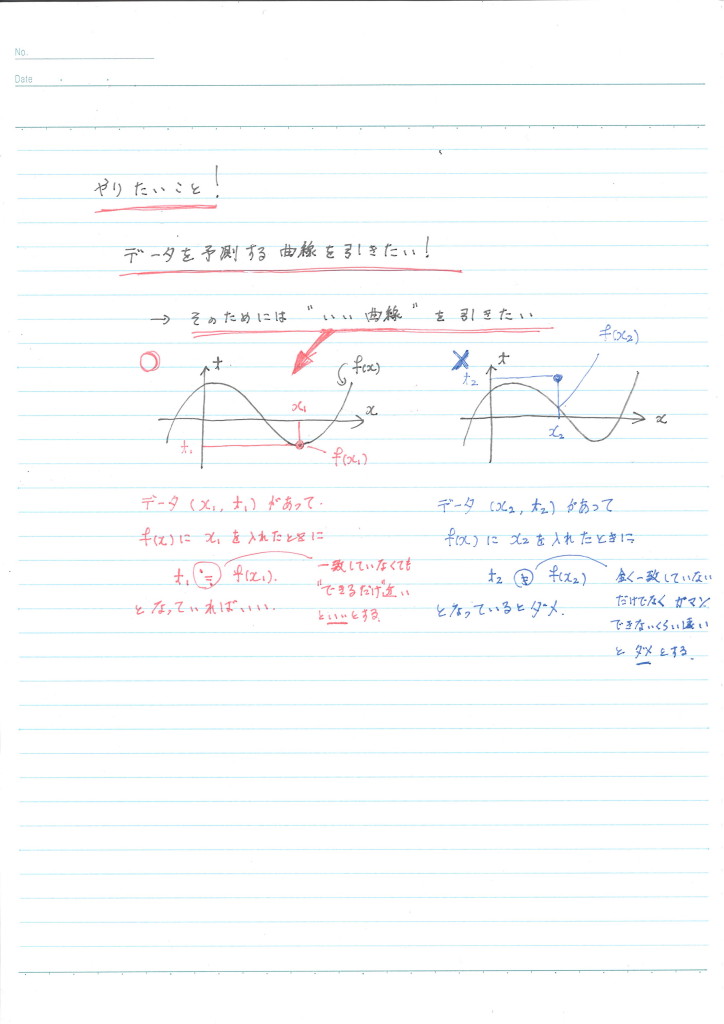 No.
Date
やりたいこと!
データを予測する曲線を引きたい!
→ そのためには "いい曲線" を引きたい
○ t f(x) x₁ x t₁ f(x₁)
× t t₂ f(x₂) x₂ x
データ (x₁, t₁) があって
f(x)に x₁を入れたときに
t₁ ≒ f(x₁).
となっていればいい.
一致していなくても
"できるだけ"近い
といいとする.
データ (x₂, t₂) があって
f(x)に x₂を入れたときに
t₂ f(x₂)
となっているとダメ.
全く一致していない
だけでなく ガマン
できないくらい遠い
と ダメとする.